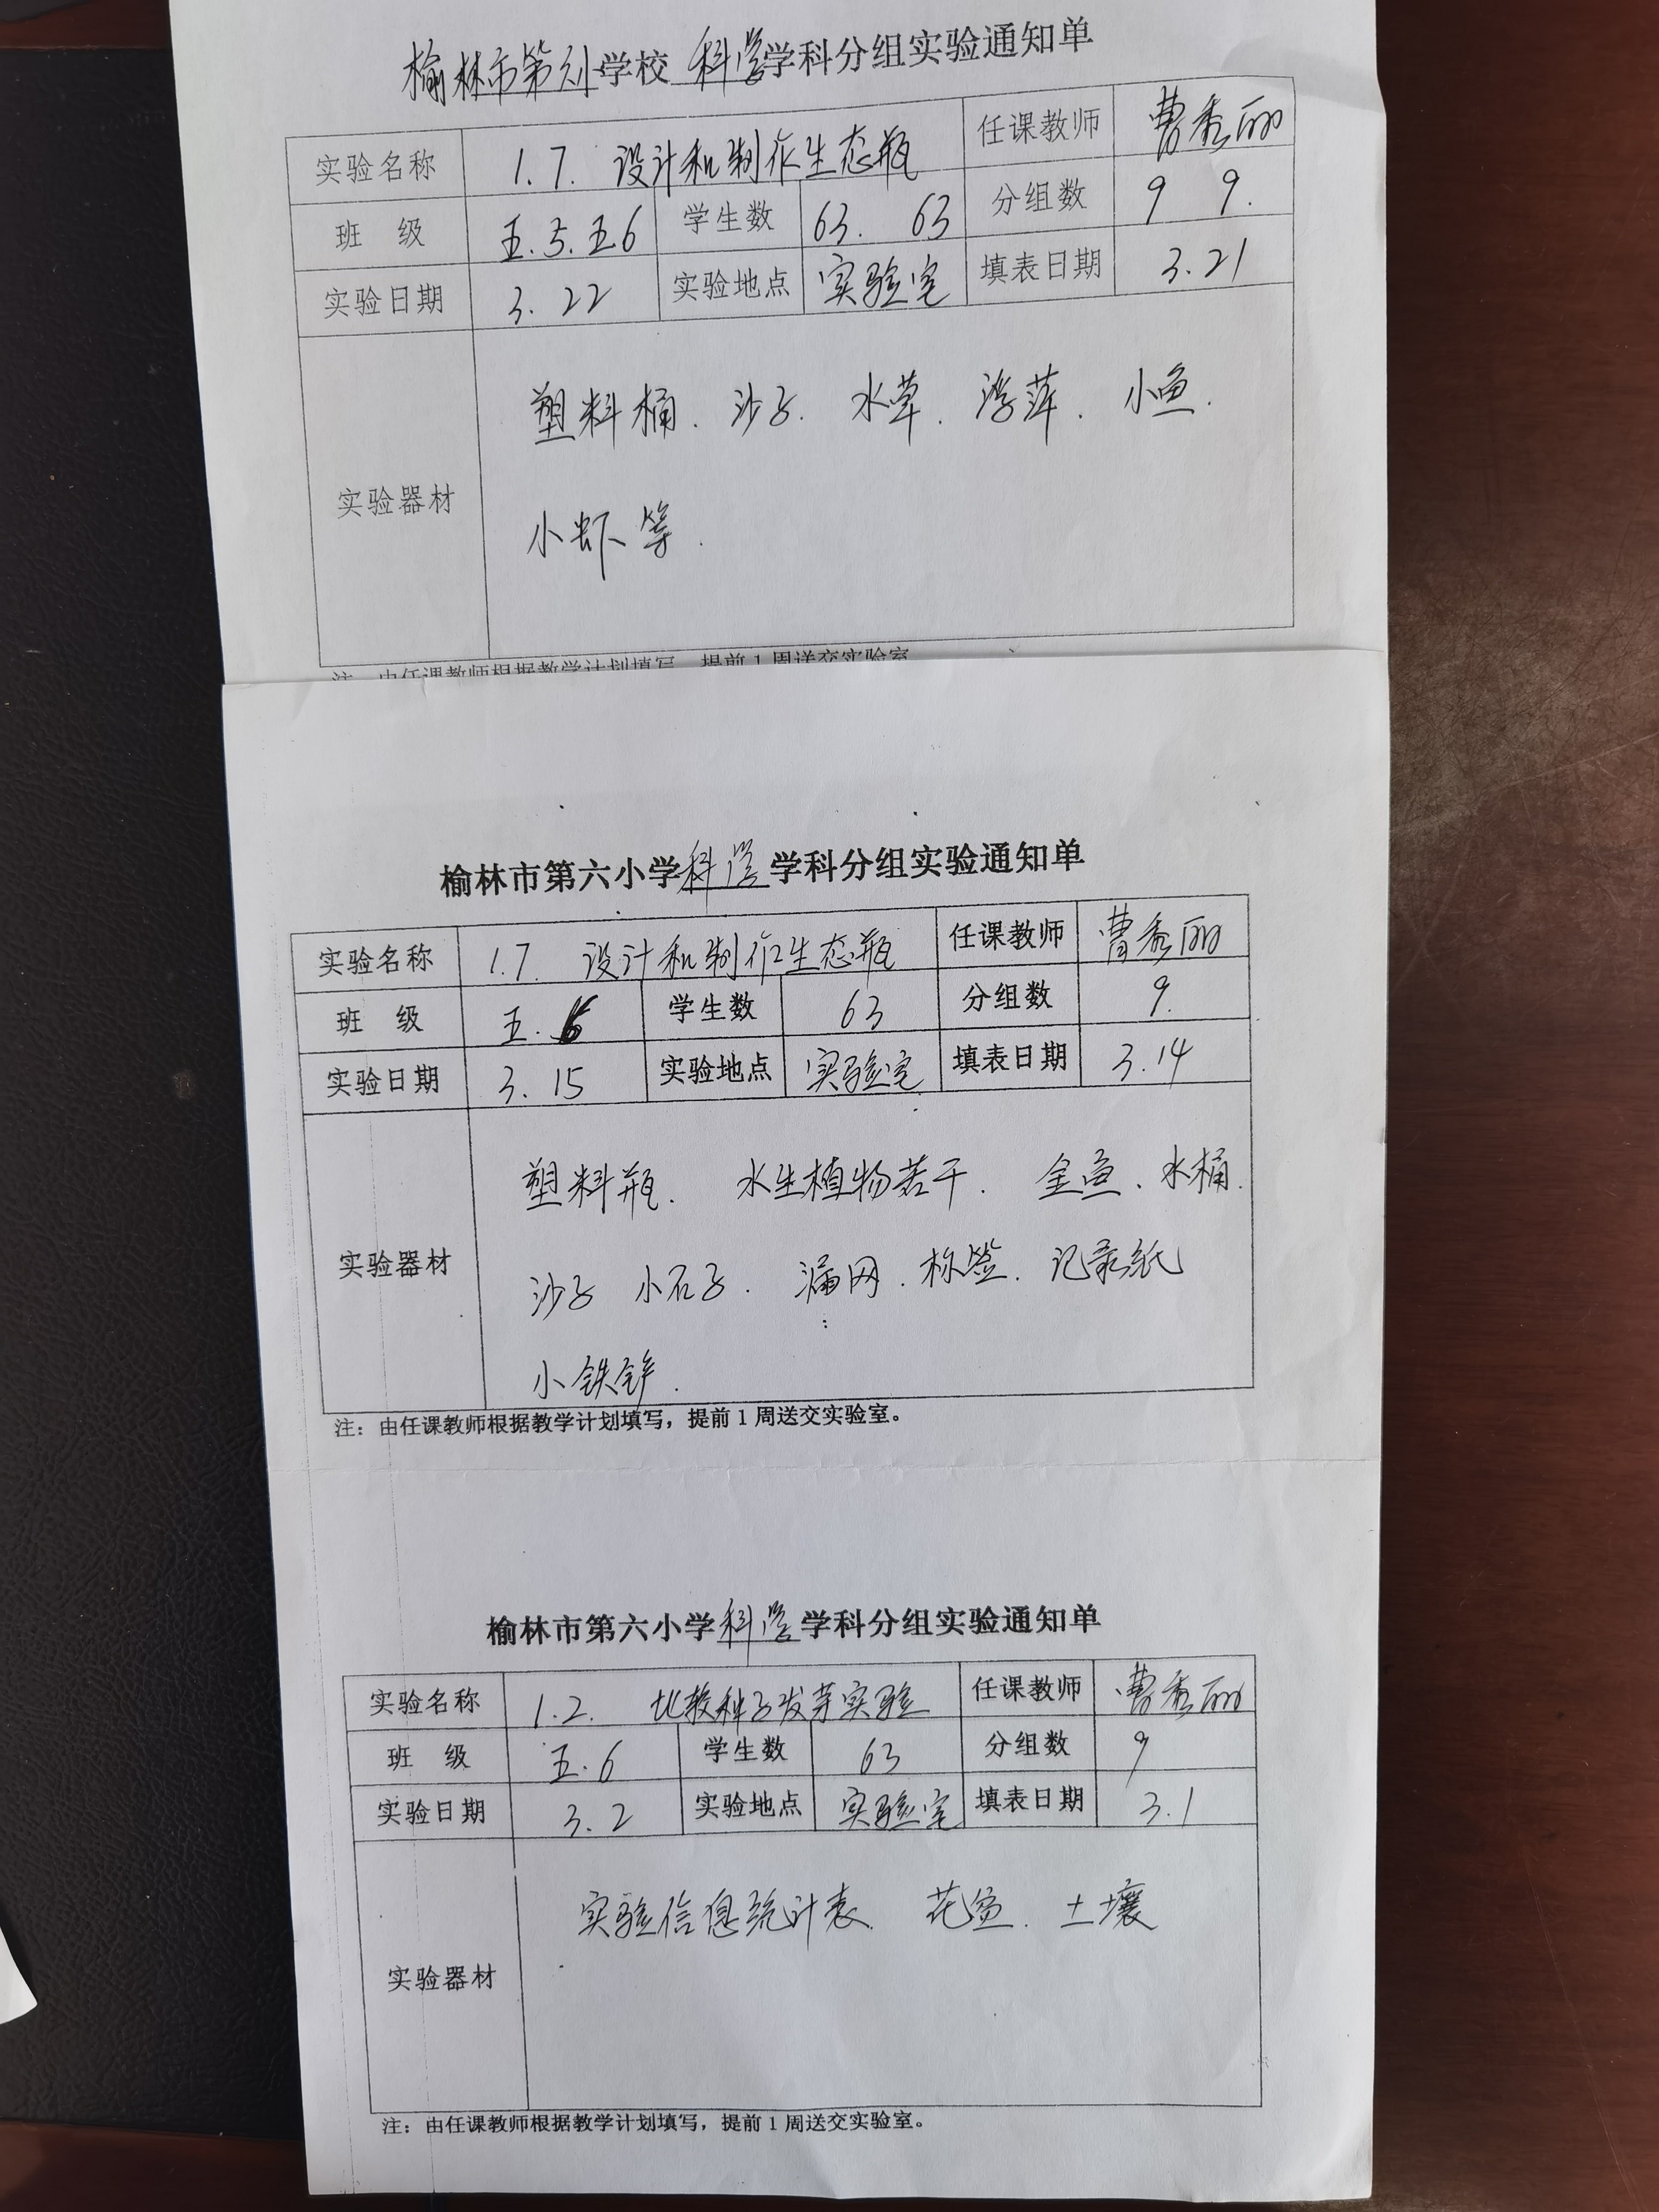 榆林市第六小学校 科学学科分组实验通知单
实验名称 1.7. 设计和制作生态瓶 任课教师 曹秀丽
班 级 五.5.五6 学生数 63. 63 分组数 9 9.
实验日期 3.22 实验地点 实验室 填表日期 3.21
塑料桶. 沙子. 水草. 浮萍. 小鱼.
实验器材
小虾等.
注：由任课教师根据教学计划填写，提前1周送交实验室
榆林市第六小学科学学科分组实验通知单
实验名称 1.7. 设计和制作生态瓶 任课教师 曹秀丽
班 级 五.6 学生数 63 分组数 9.
实验日期 3.15 实验地点 实验室 填表日期 3.14
塑料瓶. 水生植物若干. 金鱼. 水桶.
实验器材
沙子 小石子. 漏网. 标签. 记录纸
小铁铲.
注：由任课教师根据教学计划填写，提前1周送交实验室。
榆林市第六小学科学学科分组实验通知单
实验名称 1.2. 比较种子发芽实验 任课教师 曹秀丽
班 级 五.6 学生数 63 分组数 9
实验日期 3.2 实验地点 实验室 填表日期 3.1
实验信息统计表. 花盆. 土壤
实验器材
注：由任课教师根据教学计划填写，提前1周送交实验室。